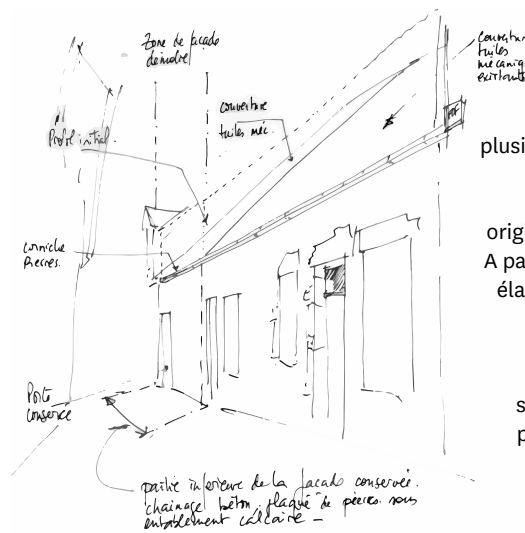 Zone de façade
démolie
couverture
tuiles
mécaniq
existant
couverture
tuiles méc.
Profil initial
plusi
orig
A pa
éla
corniche
Pierres.
Porte
conservée
s
p
partie inférieure de la façade conservée.
chainage béton plaqué de pierres sous
entablement calcaire -